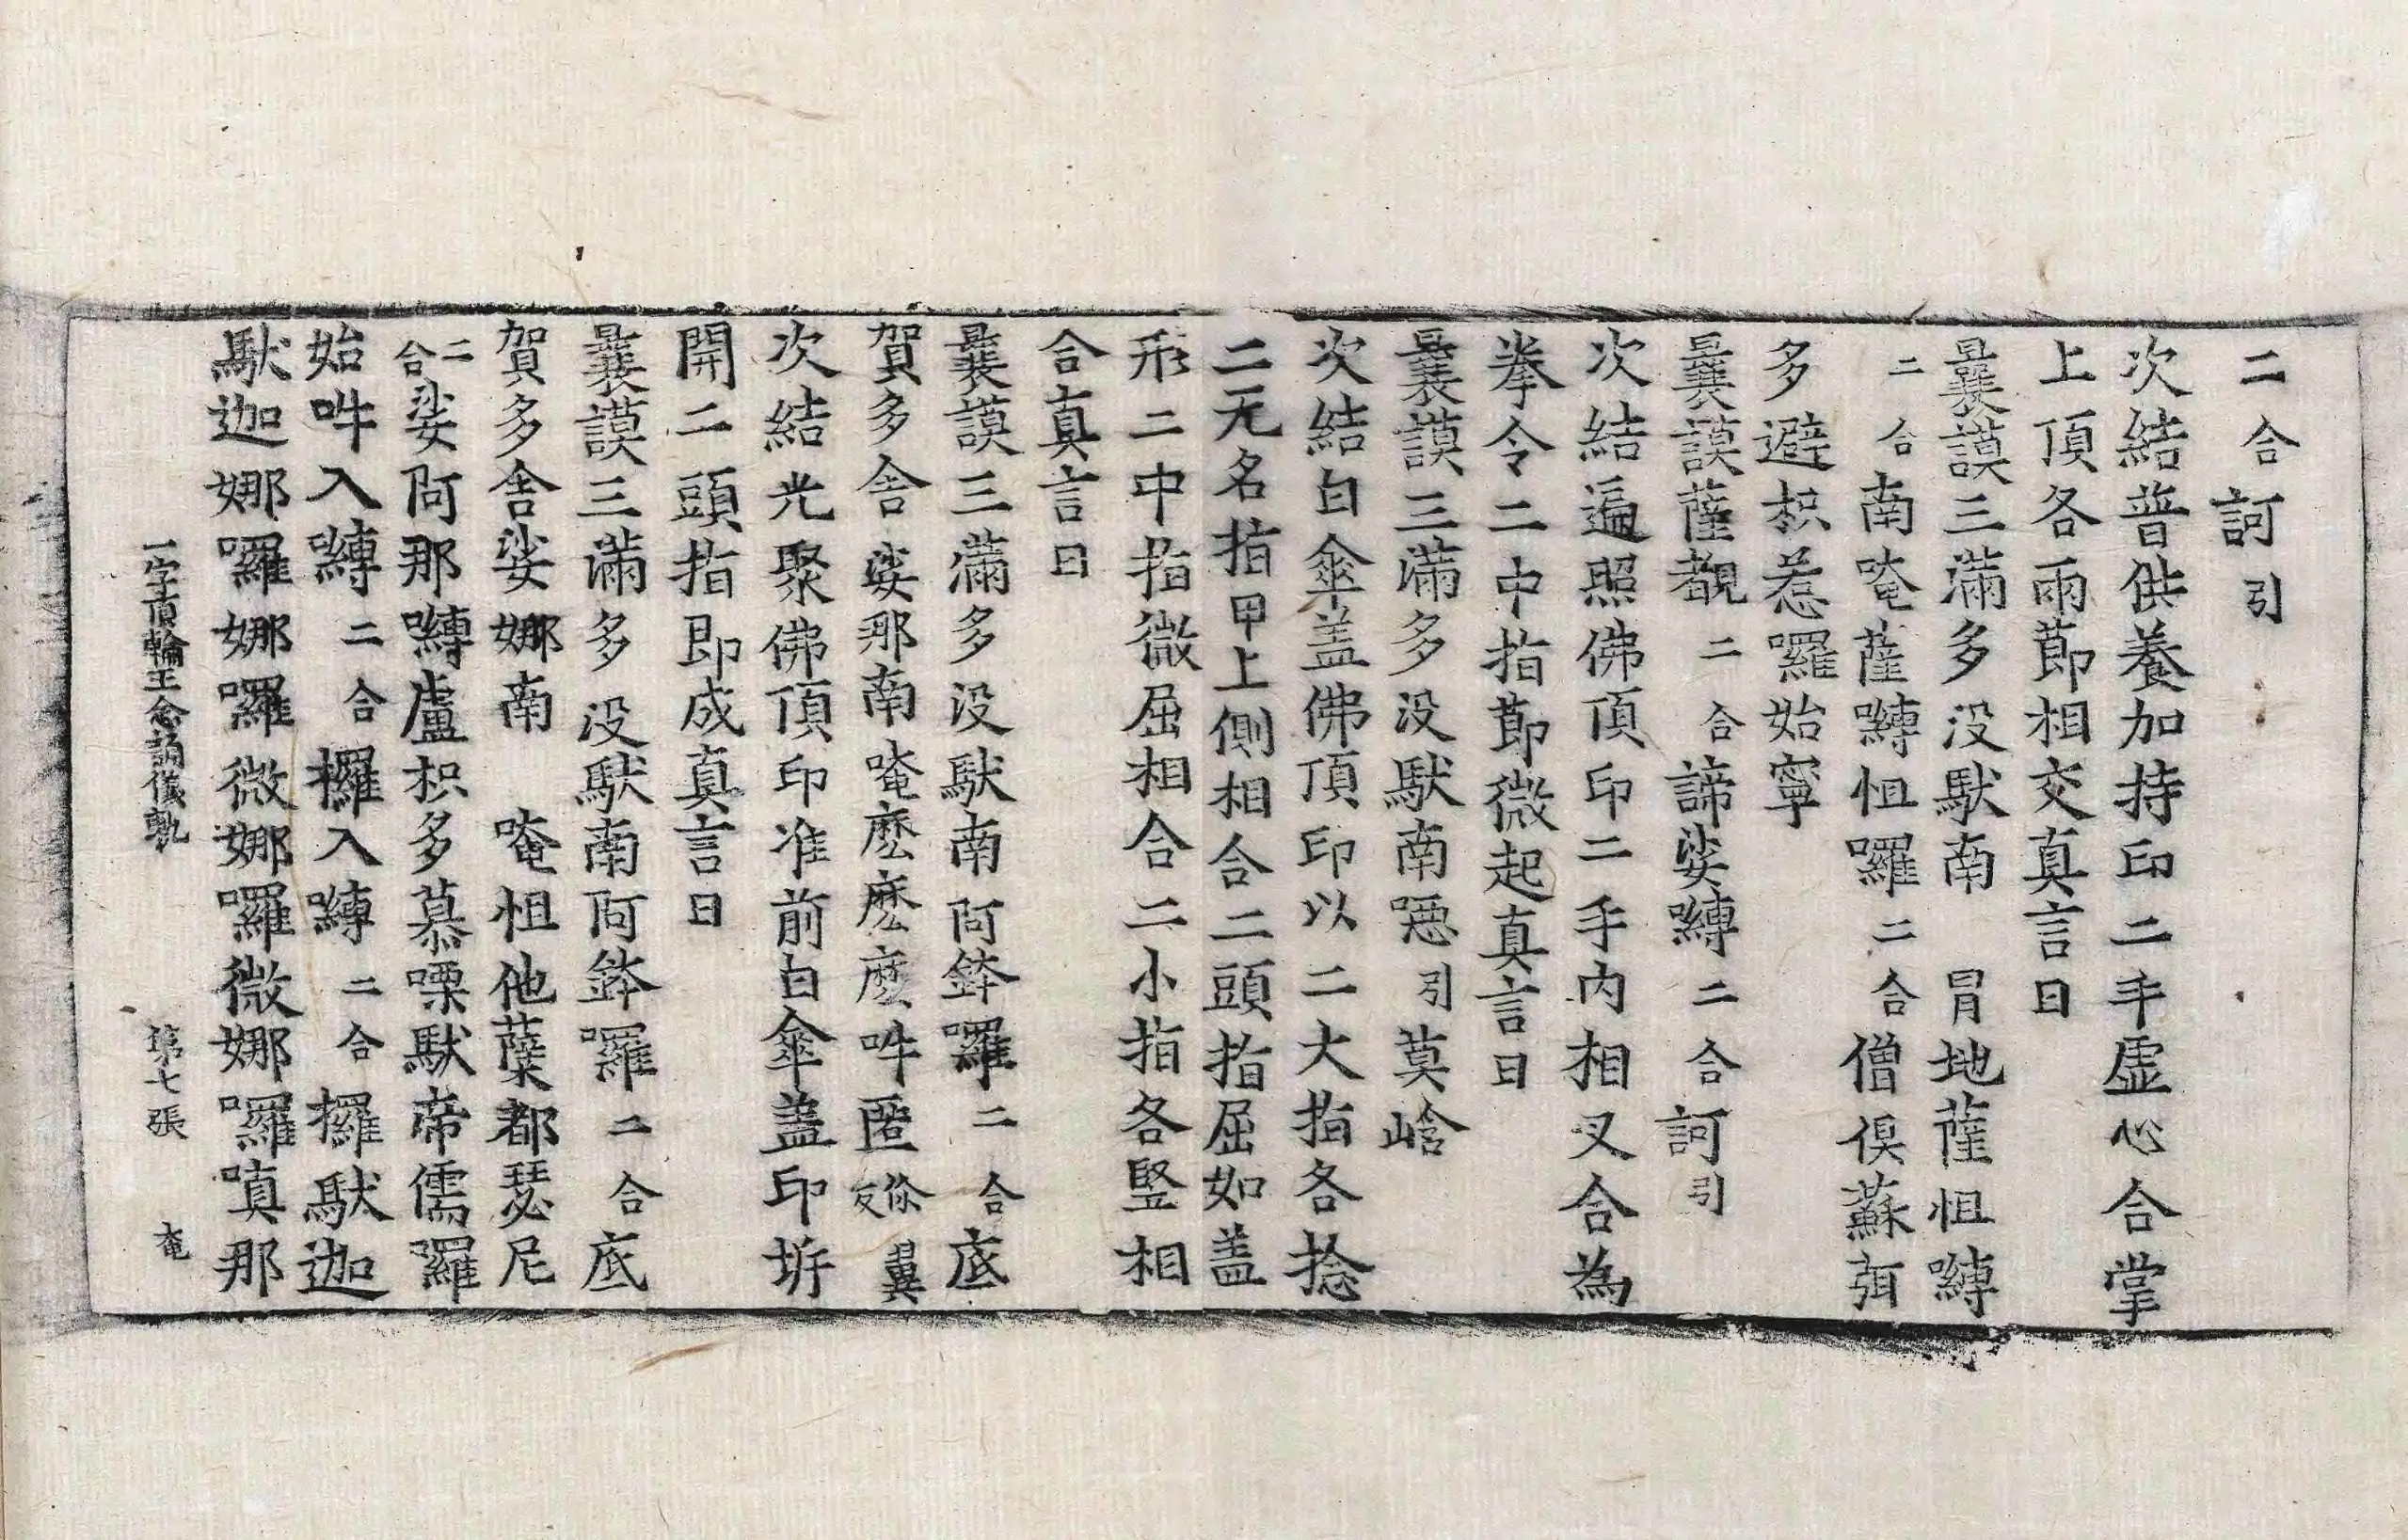 二合訶引
次結普供養加持印二手虛心合掌
上頂各兩節相交真言曰
曩謨三滿多没馱南　冐地薩怛嚩
二合南唵薩嚩怛囉二合僧俱蘇弭
多避枳惹囉始寧
曩謨薩覩二合諦娑嚩二合訶引
次結遍照佛頂印二手內相叉合為
拳令二中指節微起真言曰
曩謨三滿多没馱南噁引莫崯
次結白傘盖佛頂印以二大指各捻
二无名指甲上側相合二頭指屈如盖
形二中指微屈相合二小指各竪相
合真言曰
曩謨三滿多没馱南阿鉢囉二合底
賀多舍娑那南唵麽麽麽吽匿儞翼反
次結光聚佛頂印准前白傘盖印㘽
開二頭指即成真言曰
曩謨三滿多没馱南阿鉢囉二合底
賀多舍娑娜南　唵怛他蘖都瑟尼
二合娑阿那嚩盧枳多慕㗚馱帝儒囉
始吽入嚩二合攞入嚩二合攞馱迦
馱迦娜囉娜囉微娜囉微娜囉嗔那
一字頂輪王念誦儀軌　第七張　奄